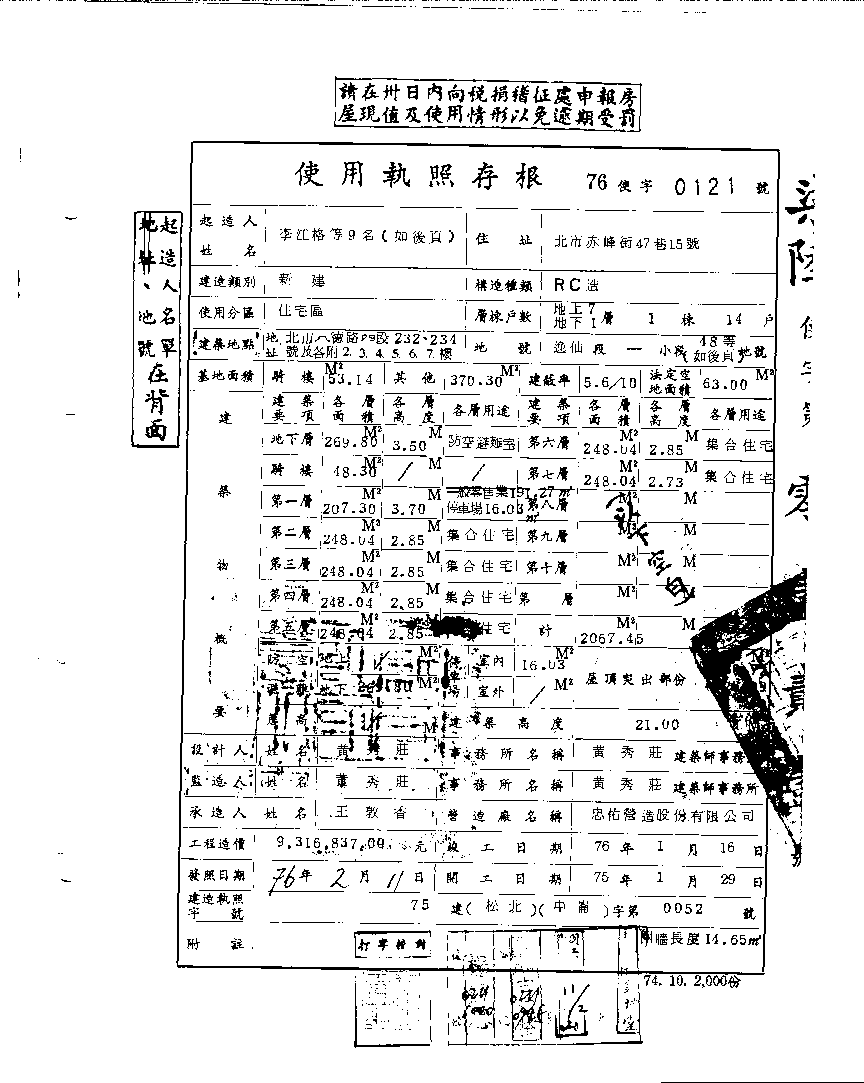 請在卅日內向稅捐稽征處申報房
屋現值及使用情形以免逾期受罰
使用執照存根 76 使字 0121 號
起造人名單
地址、地號在背面
起造人姓名 李江格等9名(如後頁) 住址 北市赤峰街47巷15號
建造類別 新建 構造種類 RC造
使用分區 住宅區 層棟戶數 地上7層 地下1層 1棟 14戶
建築地點 地址 北市八德路四段232、234號及各附2.3.4.5.6.7樓 地號 逸仙段一小段48等如後頁地號
基地面積 騎樓 53.14 M² 其他 370.30 M² 建蔽率 5.6/10 法定空地面積 63.00 M²
建築物概要
建築要項 各層面積 各層高度 各層用途 建築要項 各層面積 各層高度 各層用途
地下層 269.80 M² 3.50 M 防空避難室 第六層 248.04 M² 2.85 M 集合住宅
騎樓 48.30 M² / M / 第七層 248.04 M² 2.73 M 集合住宅
第一層 207.30 M² 3.70 M 一般零售業191.27㎡ 停車場16.03㎡ 第八層 M² M
第二層 248.04 M² 2.85 M 集合住宅 第九層 M² M
第三層 248.04 M² 2.85 M 集合住宅 第十層 M² M
以下空白
第四層 248.04 M² 2.85 M 集合住宅 第 層 M² M
第五層 248.04 M² 2.85 M 住宅 計 2067.45 M² M
防空 地上 / M² 停車場 室內 16.03 M² 屋頂突出部份
避難 地下 M² 室外 / M²
M 建築高度 21.00
設計人 姓名 黃秀莊 事務所名稱 黃秀莊建築師事務所
監造人 姓名 黃秀莊 事務所名稱 黃秀莊建築師事務所
承造人 姓名 王敦香 營造廠名稱 忠佑營造股份有限公司
工程造價 9,316,837.00 元 竣工日期 76年1月16日
發照日期 76年2月11日 開工日期 75年1月29日
建造執照字號 75 建(松北)(中崙)字第 0052 號
附註 打字校對 牆長度14.65㎡
74.10.2,000份